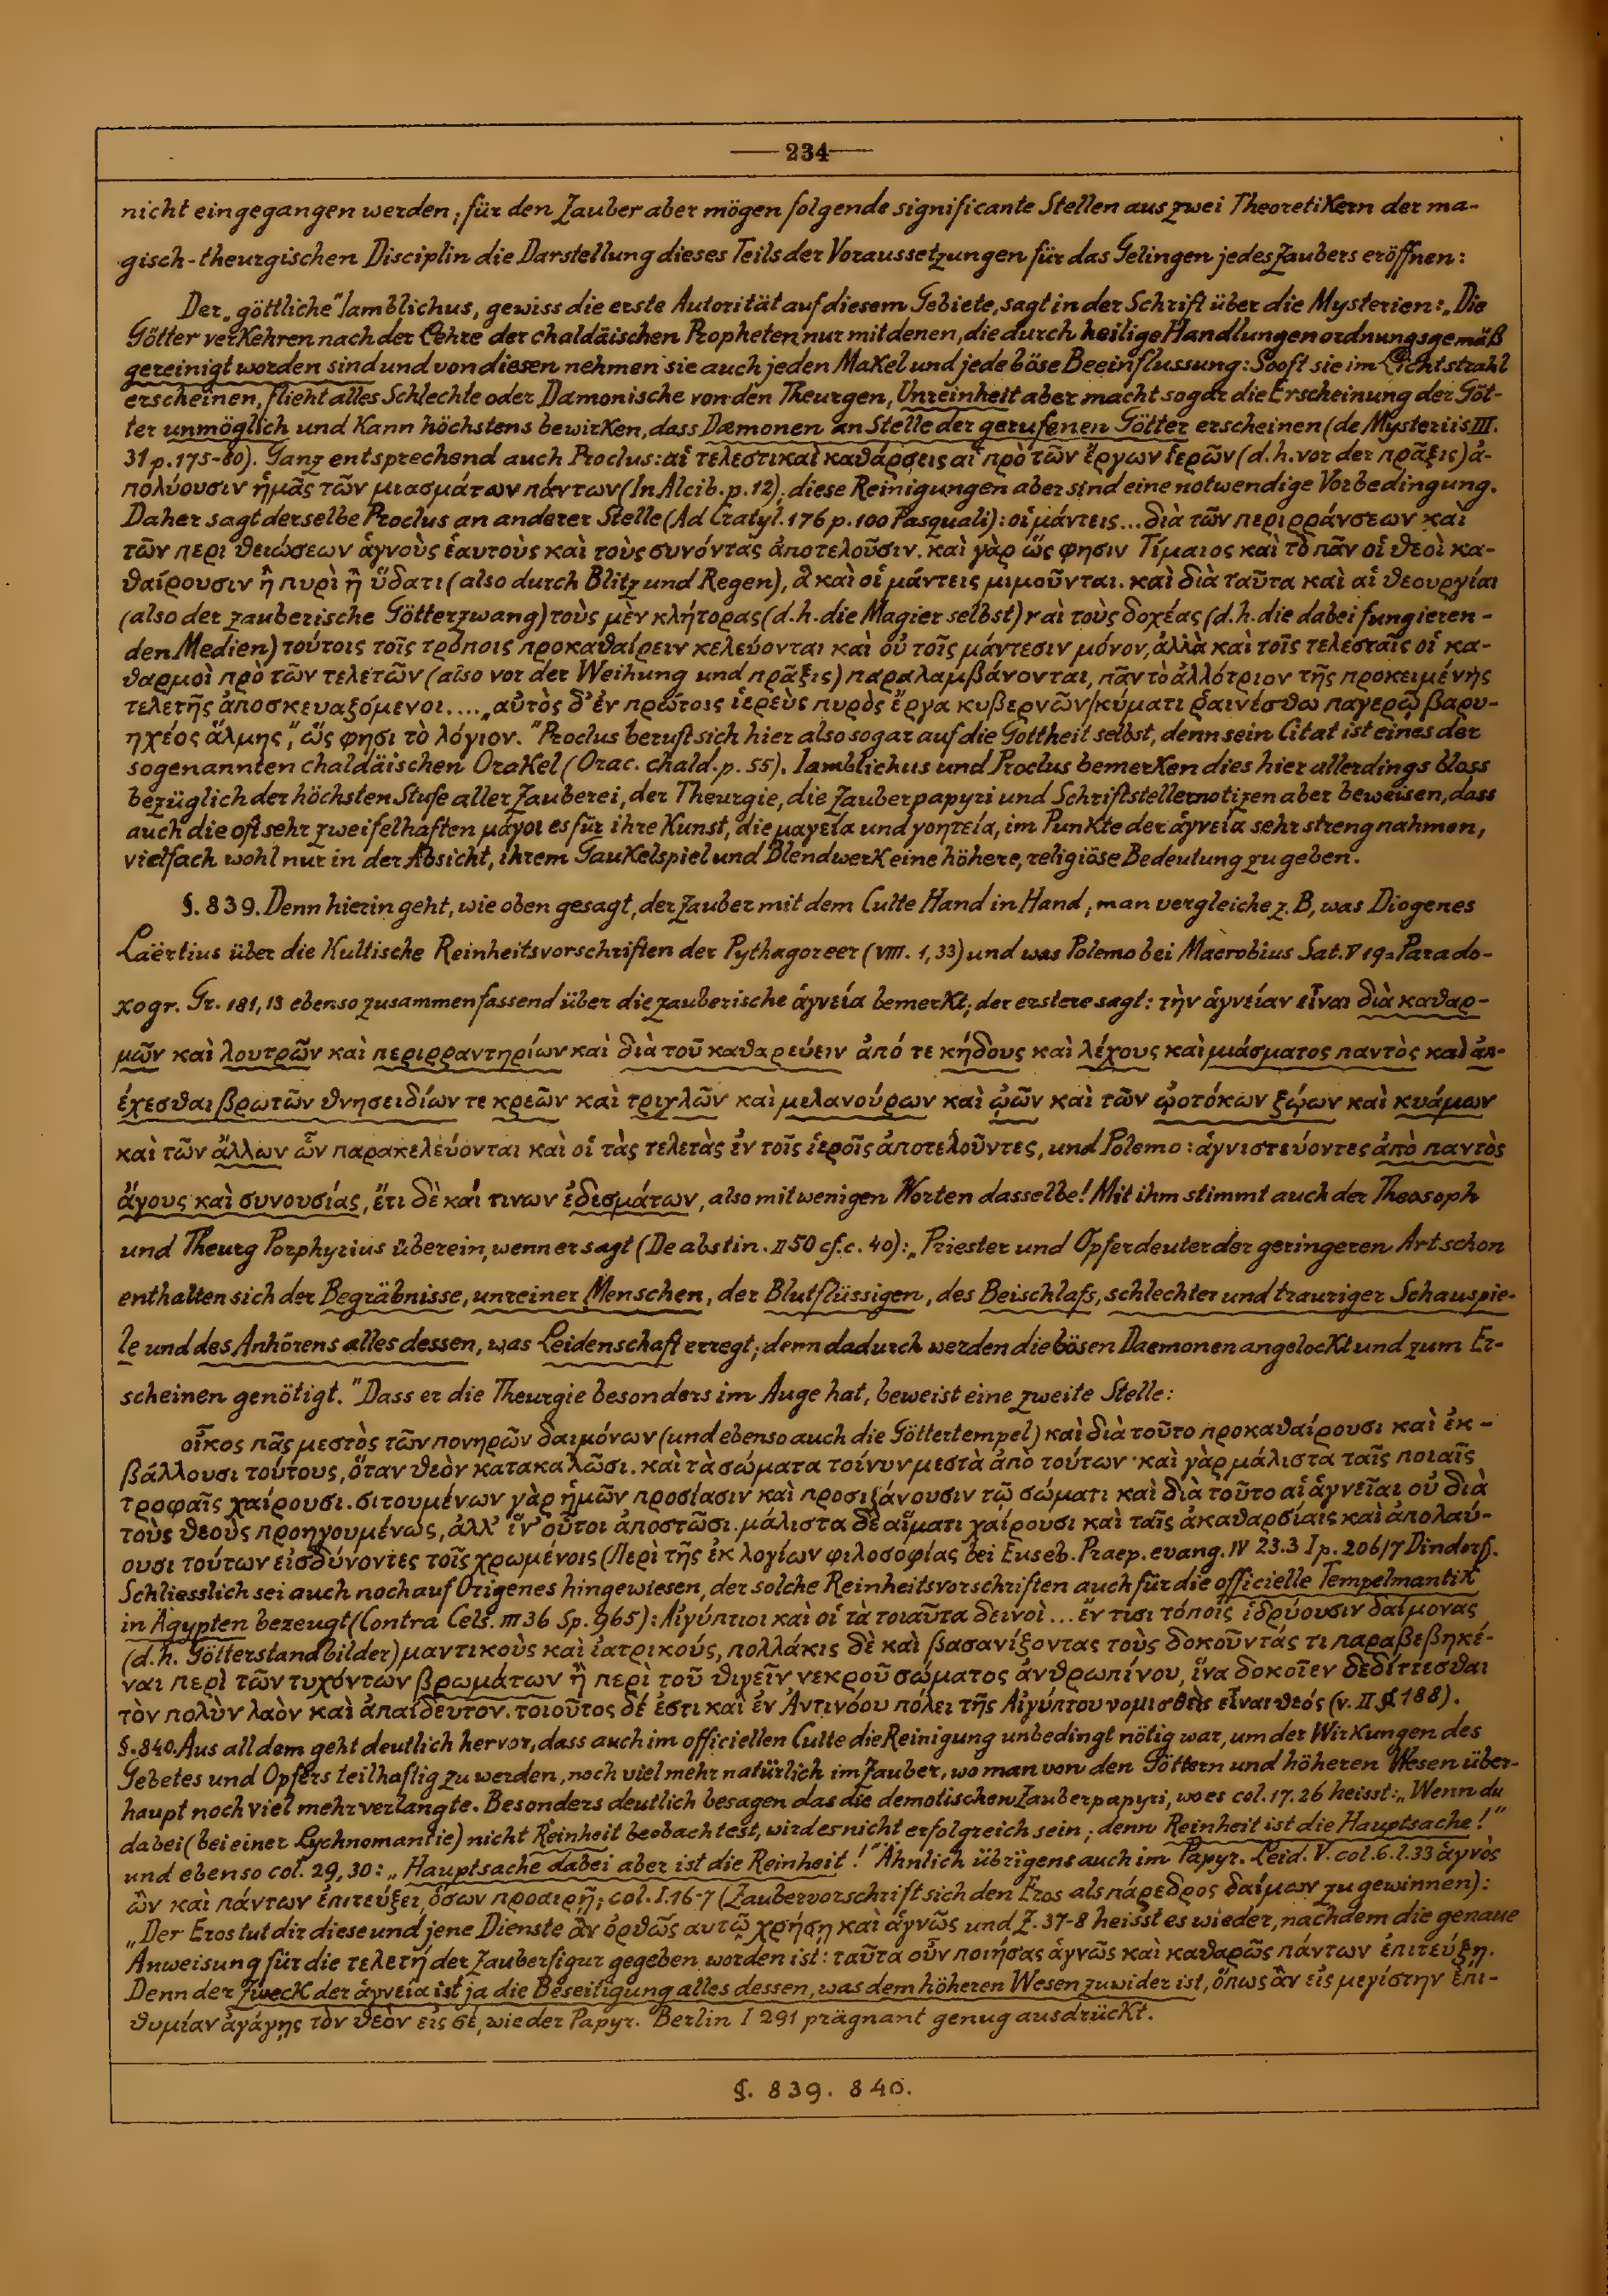 234
nicht eingegangen werden; für den Zauber aber mögen folgende significante Stellen aus zwei Theoretikern der ma-
gisch-theurgischen Disciplin die Darstellung dieses Teils der Voraussetzungen für das Gelingen jedes Zaubers eröffnen:
Der „göttliche“ Iamblichus, gewiss die erste Autorität auf diesem Gebiete, sagt in der Schrift über die Mysterien: „Die
Götter verkehren nach der Lehre der chaldäischen Propheten nur mit denen, die durch heilige Handlungen ordnungsgemäß
gereinigt worden sind und von diesen nehmen sie auch jeden Makel und jede böse Beeinflussung: Sooft sie im Lichtstrahl
erscheinen, flieht alles Schlechte oder Dæmonische von den Theurgen, Unreinheit aber macht sogar die Erscheinung der Göt-
ter unmöglich und kann höchstens bewirken, dass Dæmonen an Stelle der gerufenen Götter erscheinen (de Mysteriis III.
31 p. 175-80). Ganz entsprechend auch Proclus: αἱ τελεστικαὶ καθάρσεις αἱ πρὸ τῶν ἔργων ἱερῶν (d.h. vor der πρᾶξις) ἀ-
πολύουσιν ἡμᾶς τῶν μιασμάτων πάντων (In Alcib. p. 12); diese Reinigungen aber sind eine notwendige Vorbedingung.
Daher sagt derselbe Proclus an anderer Stelle (Ad Cratyl. 176 p. 100 Pasquali): οἱ μάντεις... διὰ τῶν περιρράνσεων καὶ
τῶν περιθειώσεων ἁγνοὺς ἑαυτοὺς καὶ τοὺς συνόντας ἀποτελοῦσιν. καὶ γὰρ ὥς φησιν Τίμαιος καὶ τὸ πᾶν οἱ θεοὶ κα-
θαίρουσιν ἢ πυρὶ ἢ ὕδατι (also durch Blitz und Regen), ἃ καὶ οἱ μάντεις μιμοῦνται. καὶ διὰ ταῦτα καὶ αἱ θεουργίαι
(also der zauberische Götterzwang) τοὺς μὲν κλήτορας (d.h. die Magier selbst) καὶ τοὺς δοχέας (d.h. die dabei fungieren-
den Medien) τούτοις τοῖς τρόποις προκαθαίρειν κελεύονται καὶ οὐ τοῖς μάντεσιν μόνον, ἀλλὰ καὶ τοῖς τελεσταῖς οἱ κα-
θαρμοὶ πρὸ τῶν τελετῶν (also vor der Weihung und πρᾶξις) παραλαμβάνονται, πᾶν τὸ ἀλλότριον τῆς προκειμένης
τελετῆς ἀποσκευαζόμενοι.... „αὐτὸς δ’ἐν πρώτοις ἱερεὺς πυρὸς ἔργα κυβερνῶν/κύματι ῥαινέσθω παγερῷ βαρυ-
ηχέος ἅλμης“, ὥς φησι τὸ λόγιον.“ Proclus beruft sich hier also sogar auf die Gottheit selbst, denn sein Citat ist eines der
sogenannten chaldäischen Orakel (Orac. chald. p. 55). Iamblichus und Proclus bemerken dies hier allerdings bloss
bezüglich der höchsten Stufe aller Zauberei, der Theurgie, die Zauberpapyri und Schriftstellernotizen aber beweisen, dass
auch die oft sehr zweifelhaften μάγοι es für ihre Kunst, die μαγεία und γοητεία, im Punkte der ἁγνεία sehr streng nahmen,
vielfach wohl nur in der Absicht, ihrem Gaukelspiel und Blendwerk eine höhere, religiöse Bedeutung zu geben.
§. 839. Denn hierin geht, wie oben gesagt, der Zauber mit dem Culte Hand in Hand; man vergleiche z. B, was Diogenes
Laërtius über die Kultische Reinheitsvorschriften der Pythagoreer (VIII. 1, 33) und was Polemo bei Macrobius Sat. V 19 = Parado-
xogr. Gr. 181, 13 ebenso zusammenfassend über die zauberische ἁγνεία bemerkt; der erstere sagt: τὴν ἁγνείαν εἶναι διὰ καθαρ-
μῶν καὶ λουτρῶν καὶ περιρραντηρίων καὶ διὰ τοῦ καθαρεύειν ἀπό τε κήδους καὶ λέχους καὶ μιάσματος παντὸς καὶ ἀπ-
έχεσθαι βρωτῶν θνησειδίων τε κρεῶν καὶ τριγλῶν καὶ μελανούρων καὶ ᾠῶν καὶ τῶν ᾠοτόκων ζῴων καὶ κυάμων
καὶ τῶν ἄλλων ὧν παρακελεύονται καὶ οἱ τὰς τελετὰς ἐν τοῖς ἱεροῖς ἀποτελοῦντες, und Polemo: ἁγνιστεύοντες ἀπὸ παντὸς
ἄγους καὶ συνουσίας, ἔτι δὲ καί τινων ἐδεσμάτων, also mit wenigen Worten dasselbe! Mit ihm stimmt auch der Theosoph
und Theurg Porphyrius überein, wenn er sagt (De abstin. II 50 cf. c. 40): „Priester und Opferdeuter der geringeren Art schon
enthalten sich der Begräbnisse, unreiner Menschen, der Blutflüssigen, des Beischlafs, schlechter und trauriger Schauspie-
le und des Anhörens alles dessen, was Leidenschaft erregt; denn dadurch werden die bösen Daemonen angelockt und zum Er-
scheinen genötigt.“ Dass er die Theurgie besonders im Auge hat, beweist eine zweite Stelle:
οἶκος πᾶς μεστὸς τῶν πονηρῶν δαιμόνων (und ebenso auch die Göttertempel) καὶ διὰ τοῦτο προκαθαίρουσι καὶ ἐκ-
βάλλουσι τούτους, ὅταν θεὸν κατακαλῶσι. καὶ τὰ σώματα τοίνυν μεστὰ ἀπὸ τούτων· καὶ γὰρ μάλιστα ταῖς ποιαῖς
τροφαῖς χαίρουσι. σιτουμένων γὰρ ἡμῶν προσίασιν καὶ προσιζάνουσιν τῷ σώματι καὶ διὰ τοῦτο αἱ ἁγνεῖαι οὐ διὰ
τοὺς θεοὺς προηγουμένως, ἀλλ’ ἵν’ οὗτοι ἀποστῶσι. μάλιστα δὲ αἵματι χαίρουσι καὶ ταῖς ἀκαθαρσίαις καὶ ἀπολαύ-
ουσι τούτων εἰσδύνοντες τοῖς χρωμένοις (Περὶ τῆς ἐκ λογίων φιλοσοφίας bei Euseb. Praep. evang. IV 23.3 I p. 206/7 Dindorf.
Schliesslich sei auch noch auf Origenes hingewiesen, der solche Reinheitsvorschriften auch für die officielle Tempelmantik
in Ägypten bezeugt (Contra Cels. III 36 Sp. 965): Αἰγύπτιοι καὶ οἱ τὰ τοιαῦτα δεινοὶ... ἔν τισι τόποις ἱδρύουσιν δαίμονας
(d.h. Götterstandbilder) μαντικοὺς καὶ ἰατρικούς, πολλάκις δὲ καὶ βασανίζοντας τοὺς δοκοῦντάς τι παραβεβηκέ-
ναι περὶ τῶν τυχόντων βρωμάτων ἢ περὶ τοῦ θιγεῖν νεκροῦ σώματος ἀνθρωπίνου, ἵνα δοκοῖεν δεδίττεσθαι
τὸν πολὺν λαὸν καὶ ἀπαίδευτον. τοιοῦτος δέ ἐστι καὶ ἐν Ἀντινόου πόλει τῆς Αἰγύπτου νομισθεὶς εἶναι θεός (v. II § 188).
§. 840. Aus all dem geht deutlich hervor, dass auch im officiellen Culte die Reinigung unbedingt nötig war, um der Wirkungen des
Gebetes und Opfers teilhaftig zu werden, noch viel mehr natürlich im Zauber, wo man von den Göttern und höheren Wesen über-
haupt noch viel mehr verlangte. Besonders deutlich besagen das die demotischen Zauberpapyri, wo es col. 17. 26 heisst: „Wenn du
dabei (bei einer Lychnomantie) nicht Reinheit beobachtest, wird es nicht erfolgreich sein; denn Reinheit ist die Hauptsache!“
und ebenso col. 29, 30: „Hauptsache dabei aber ist die Reinheit!“ Ähnlich übrigens auch im Papyr. Leid. V. col. 6. l. 33 ἁγνὸς
ὢν καὶ πάντων ἐπιτεύξει, ὅσων προαιρῇ; col. I. 16-7 (Zaubervorschrift sich den Eros als πάρεδρος δαίμων zu gewinnen):
„Der Eros tut dir diese und jene Dienste ἂν ὀρθῶς αυτῷ χρήσῃ καὶ ἁγνῶς und Z. 37-8 heisst es wieder, nachdem die genaue
Anweisung für die τελετή der Zauberfigur gegeben worden ist: ταῦτα οὖν ποιήσας ἁγνῶς καὶ καθαρῶς πάντων ἐπιτεύξῃ.
Denn der Zweck der ἁγνεία ist ja die Beseitigung alles dessen, was dem höheren Wesen zuwider ist, ὅπως ἂν εἰς μεγίστην ἐπι-
θυμίαν ἀγάγῃς τὸν θεὸν εἰς σέ, wie der Papyr. Berlin I 291 prägnant genug ausdrückt.
§. 839. 840.